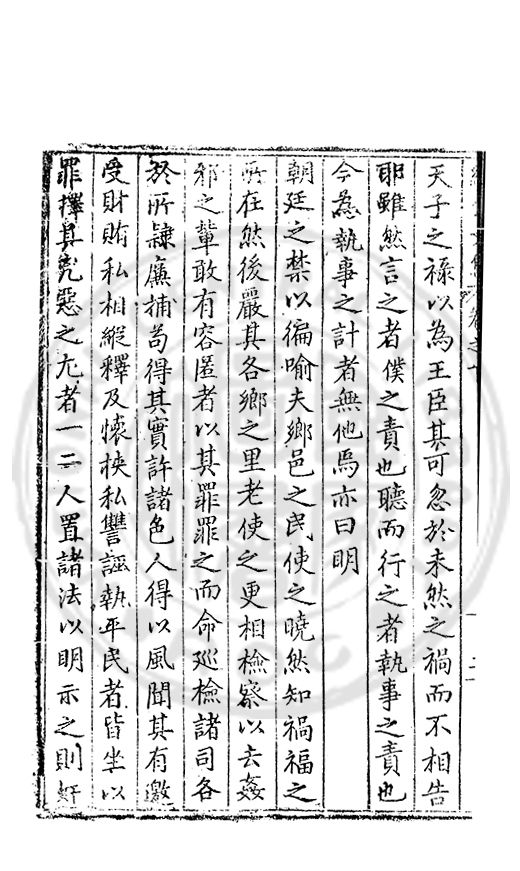 天子之祿以為王臣其可忽於未然之禍而不相告
耶雖然言之者僕之責也聽而行之者執事之責也
今為執事之計者無他焉亦曰明
朝廷之禁以徧喻夫鄉邑之民使之曉然知禍福之
所在然後嚴其各鄉之里老使之更相檢察以去姦
邪之輩敢有容匿者以其罪罪之而命巡檢諸司各
於所隷廉捕苟得其實許諸色人得以風聞其有激
受財賄私相縱釋及懷挾私讐誣執平民者皆坐以
罪擇其兇惡之尤者一二人置諸法以明示之則奸